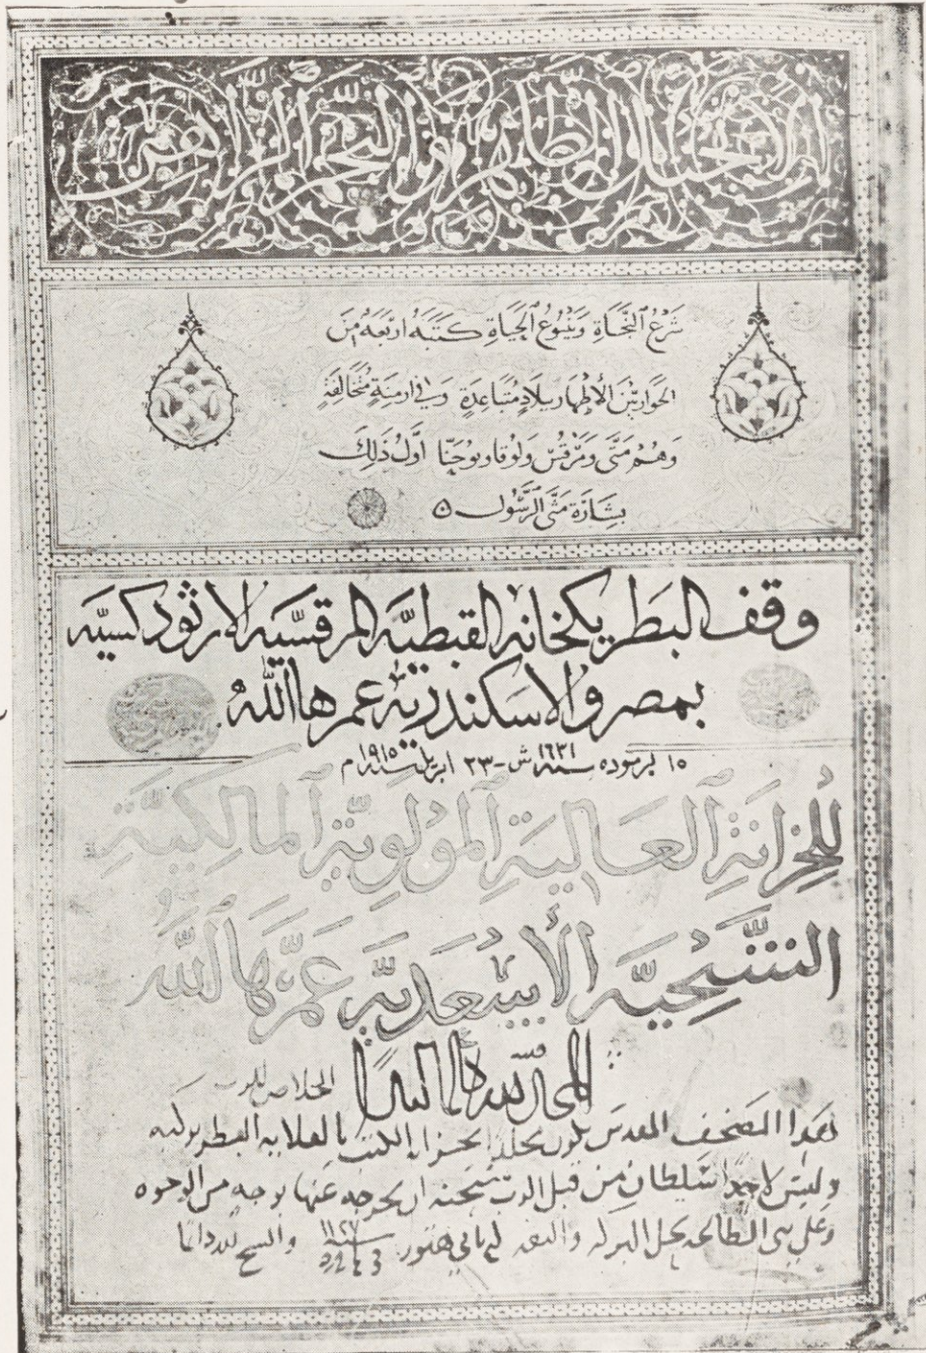 الانجيل الطاهر والبحر الزاهر
شَرْعُ ٱلنَّجَاةِ وَيَنْبُوعُ ٱلْحَيَاةِ كَتَبَهُ اَرْبَعَةٌ مِنَ
الحَوَارِيّيْنَ الأَطْهَار ببِلَادٍ مُتَبَاعِدَةٍ وَفِي ازمِنَةٍ مُخَالِفَةٍ
وَهُمْ مَتَّى وَمَرْقُسْ وَلُوْقا ويُوحَنّا اوّلُ ذَلِكَ
بِشَارَة مَتَّى ٱلرَّسُولِ
وقف البطريكخانه القبطيّه المرقسيّه الارثوذكسيّه
بمصر والاسكندريّه عمرها اللهُ
١٥ برموده سنة ١٦٣١ ش - ٢٣ ابريل سنة ١٩١٥ م
لِلْخِزَانَةِ ٱلْعَالِيَةِ ٱلْمَوْلَوِيَّةِ ٱلْمَالِكِيَّةِ
الشَّيْخِيَّه الأَسْعَدِيَّه عَمَّرَهَا اللّهُ
الخلاص للرب
هدا المصحف المقدس يكون مخلدا بخزانه الكتب بالقلايه البطريركيه
وليس لاحدا سلطان من قبل الرب سبحنه ان يخرجه عنها بوجه من الوجوه
وعلى بنى الطاعه تحل البركه والنعمه هتور ١١٢٧ والسبح لله دائما